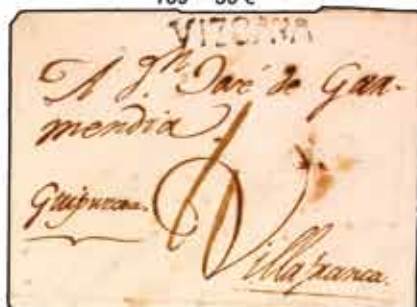 VIZCAYA
A Dn. José de Gar-
mendia
Guipuzcoa.
Villafranca.